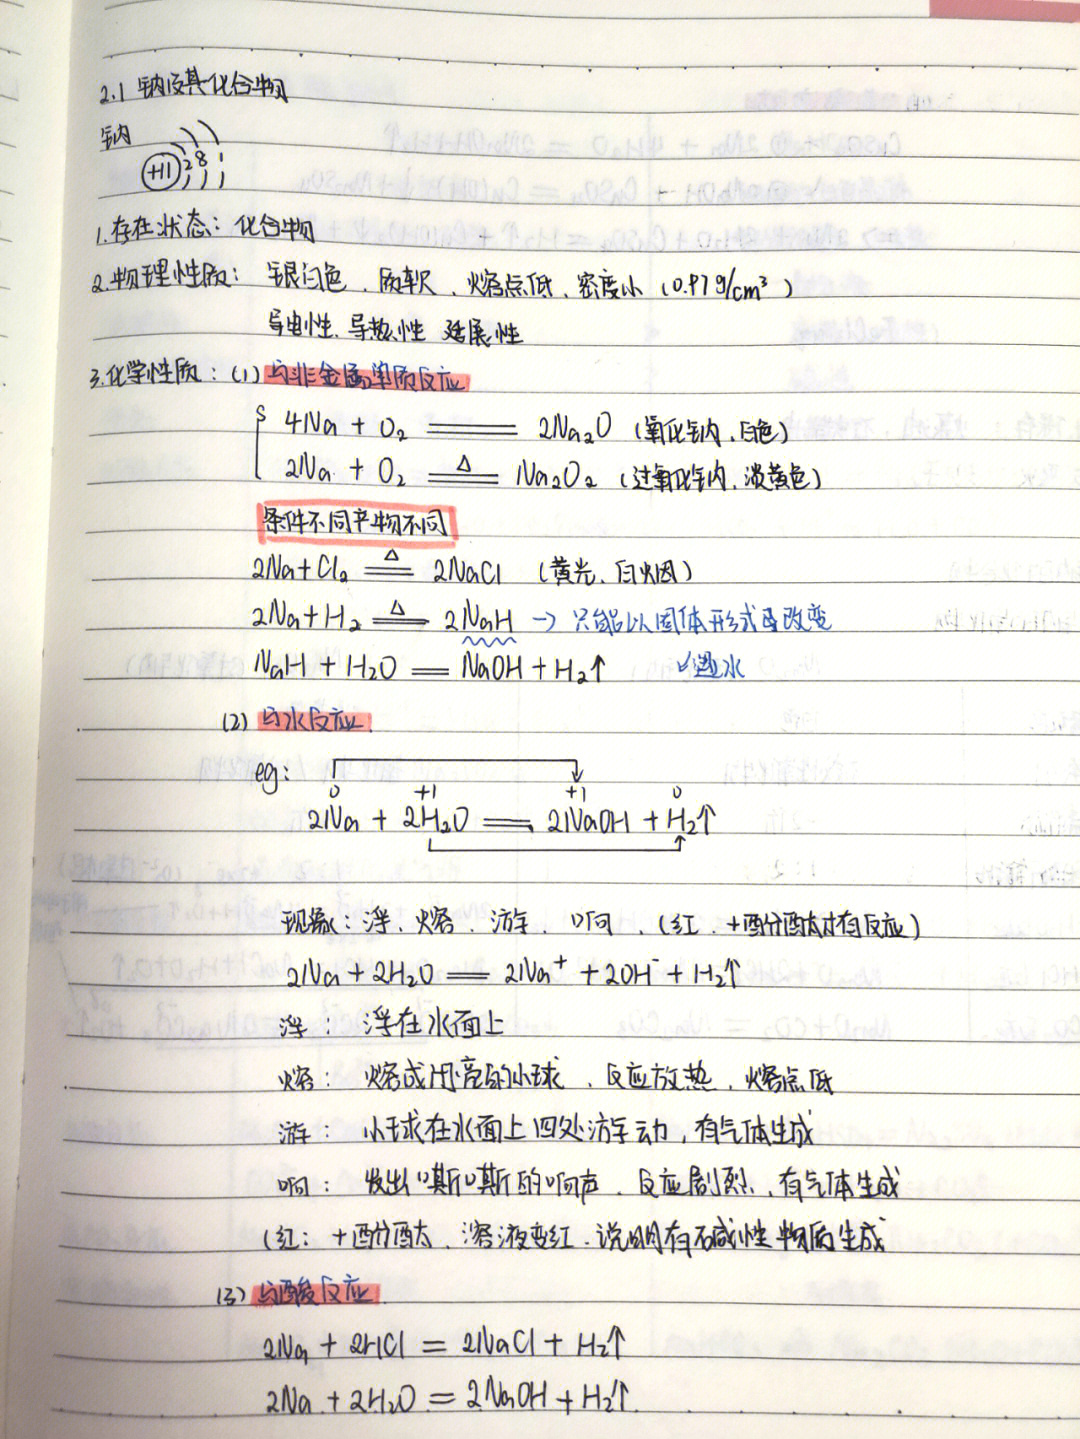 2.1 钠及其化合物
钠
+11 2 8 1
1.存在状态：化合物
2.物理性质：银白色、质软、熔点低、密度小（0.97g/cm³）
导电性、导热性 延展性
3.化学性质：(1) 与非金属单质反应
4Na + O₂ === 2Na₂O（氧化钠、白色）
2Na + O₂ =△= Na₂O₂（过氧化钠、淡黄色）
条件不同产物不同
2Na + Cl₂ =△= 2NaCl（黄光、白烟）
2Na + H₂ =△= 2NaH → 只能以固体形式
NaH + H₂O == NaOH + H₂↑ 遇水
(2) 与水反应
eg:
0 +1 +1 0
2Na + 2H₂O == 2NaOH + H₂↑
现象：浮、熔、游、响、（红、+酚酞时有反应）
2Na + 2H₂O == 2Na⁺ + 2OH⁻ + H₂↑
浮：浮在水面上
熔：熔成闪亮的小球、反应放热、熔点低
游：小球在水面上四处游动，有气体生成
响：发出嘶嘶的响声、反应剧烈、有气体生成
（红：+酚酞、溶液变红、说明有碱性物质生成
(3) 与酸反应
2Na + 2HCl = 2NaCl + H₂↑
2Na + 2H₂O = 2NaOH + H₂↑